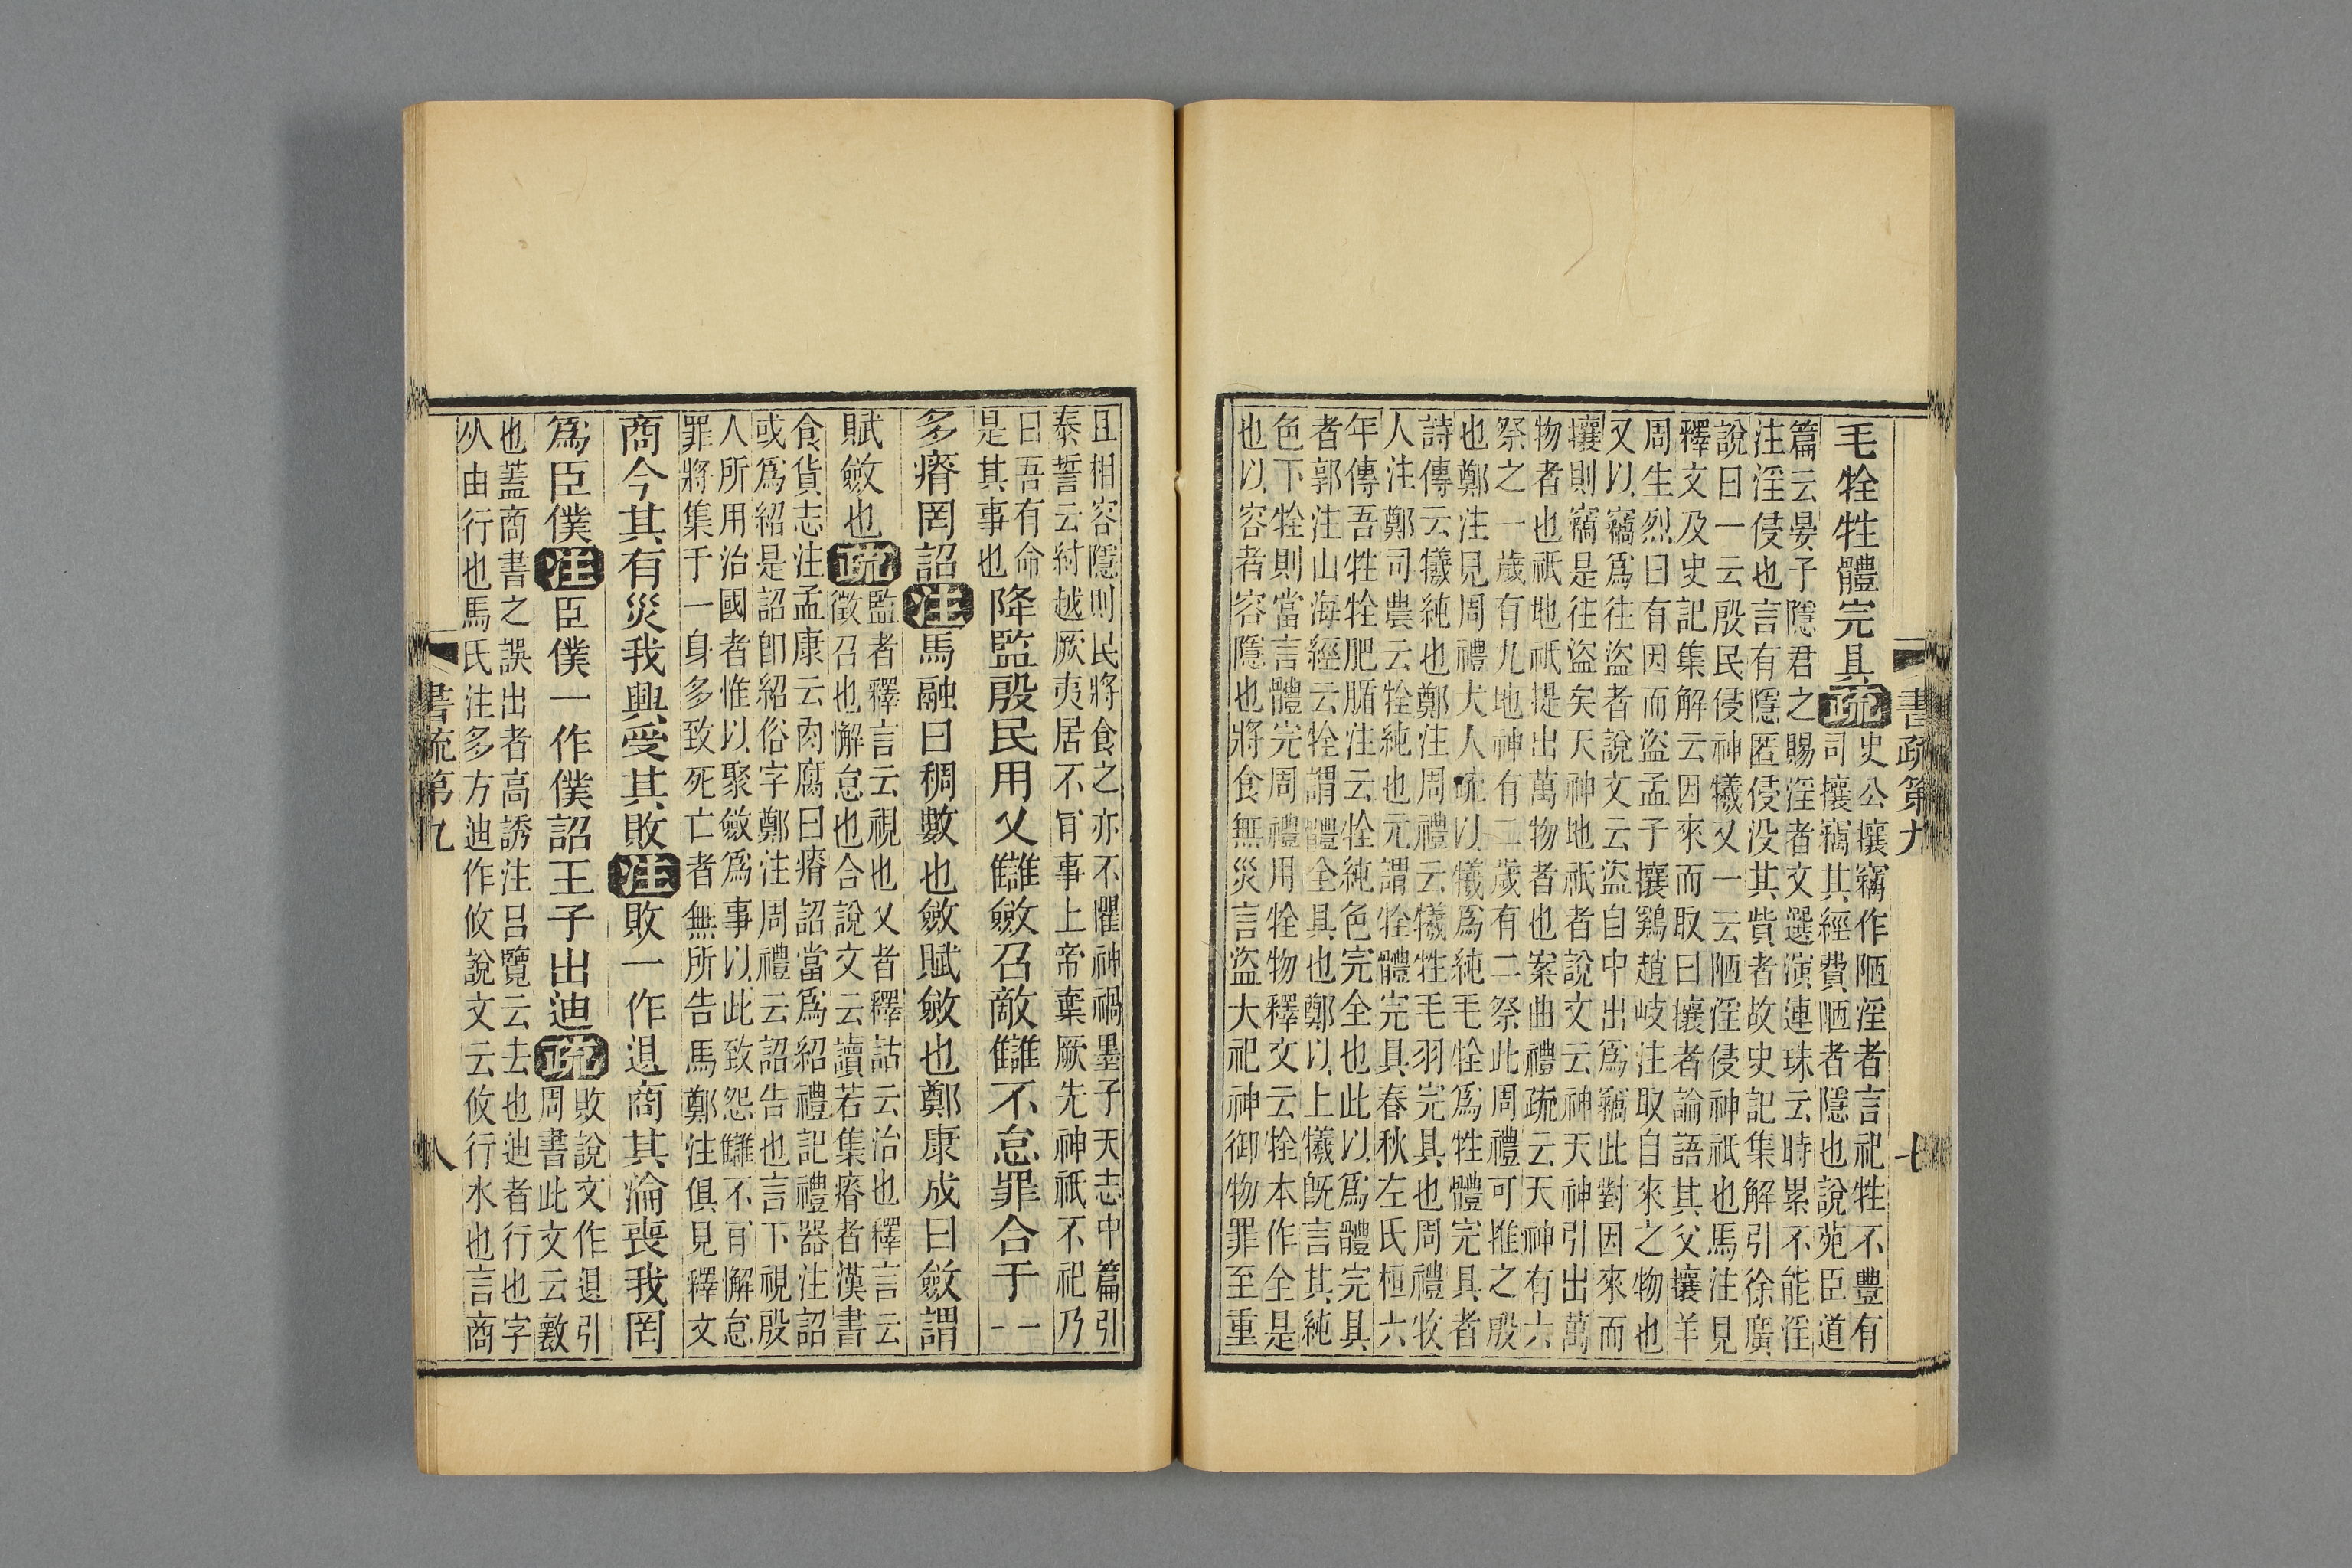 書疏第九
七
毛牷牲體完具疏
史公攘竊作陋淫者言祀牲不豐有
司攘竊其經費陋者隱也說苑臣道
篇云晏子隱君之賜淫者文選演連珠云時累不能淫
注淫侵也言有隱匿侵没其貲者故史記集解引徐廣
說曰一云殷民侵神犧又一云陋淫侵神祇也馬注見
釋文及史記集解云因來而取曰攘者論語其父攘羊
周生烈曰有因而盗孟子攘鷄趙岐注取自來之物也
又以竊爲往盗者說文云盗自中出爲竊此對因來而
攘則竊是往盗矣天神地祇者說文云神天神引出萬
物者也祇地祇提出萬物者也案曲禮疏云天神有六
祭之一歲有九地神有二歲有二祭此周禮可推之殷
也鄭注見周禮犬人疏以犧爲純毛牷爲牲體完具者
詩傳云犧純也鄭注周禮云犧牲毛羽完具也周禮牧
人注鄭司農云牷純也元謂牷體完具春秋左氏桓六
年傳吾牲牷肥腯注云牷純色完全也此以爲體完具
者郭注山海經云牷謂體全具也鄭以上犧旣言其純
色下牷則當言體完周禮用牷物釋文云牷本作全是
也以容者容隱也將食無災言盗大祀神御物罪至重
且相容隱則民將食之亦不懼神禍墨子天志中篇引
泰誓云紂越厥夷居不肎事上帝棄厥先神祇不祀乃
曰吾有命
是其事也
降監殷民用乂讎斂召敵讎不怠罪合于一
多瘠罔詔注馬融曰稠數也斂賦斂也鄭康成曰斂謂
賦斂也疏
監者釋言云視也乂者釋詁云治也釋言云
徵召也懈怠也合說文云讀若集瘠者漢書
食貨志注孟康云肉腐曰瘠詔當爲紹禮記禮器注詔
或爲紹是詔卽紹俗字鄭注周禮云詔告也言下視殷
人所用治國者惟以聚斂爲事以此致怨讎不肎解怠
罪將集于一身多致死亡者無所告馬鄭注俱見釋文
商今其有災我興受其敗注敗一作退商其淪喪我罔
爲臣僕注臣僕一作僕詔王子出迪疏
敗說文作退引
周書此文云斁
也蓋商書之誤出者高誘注呂覽云去也迪者行也字
从由行也馬氏注多方迪作攸說文云攸行水也言商
書疏第九
八